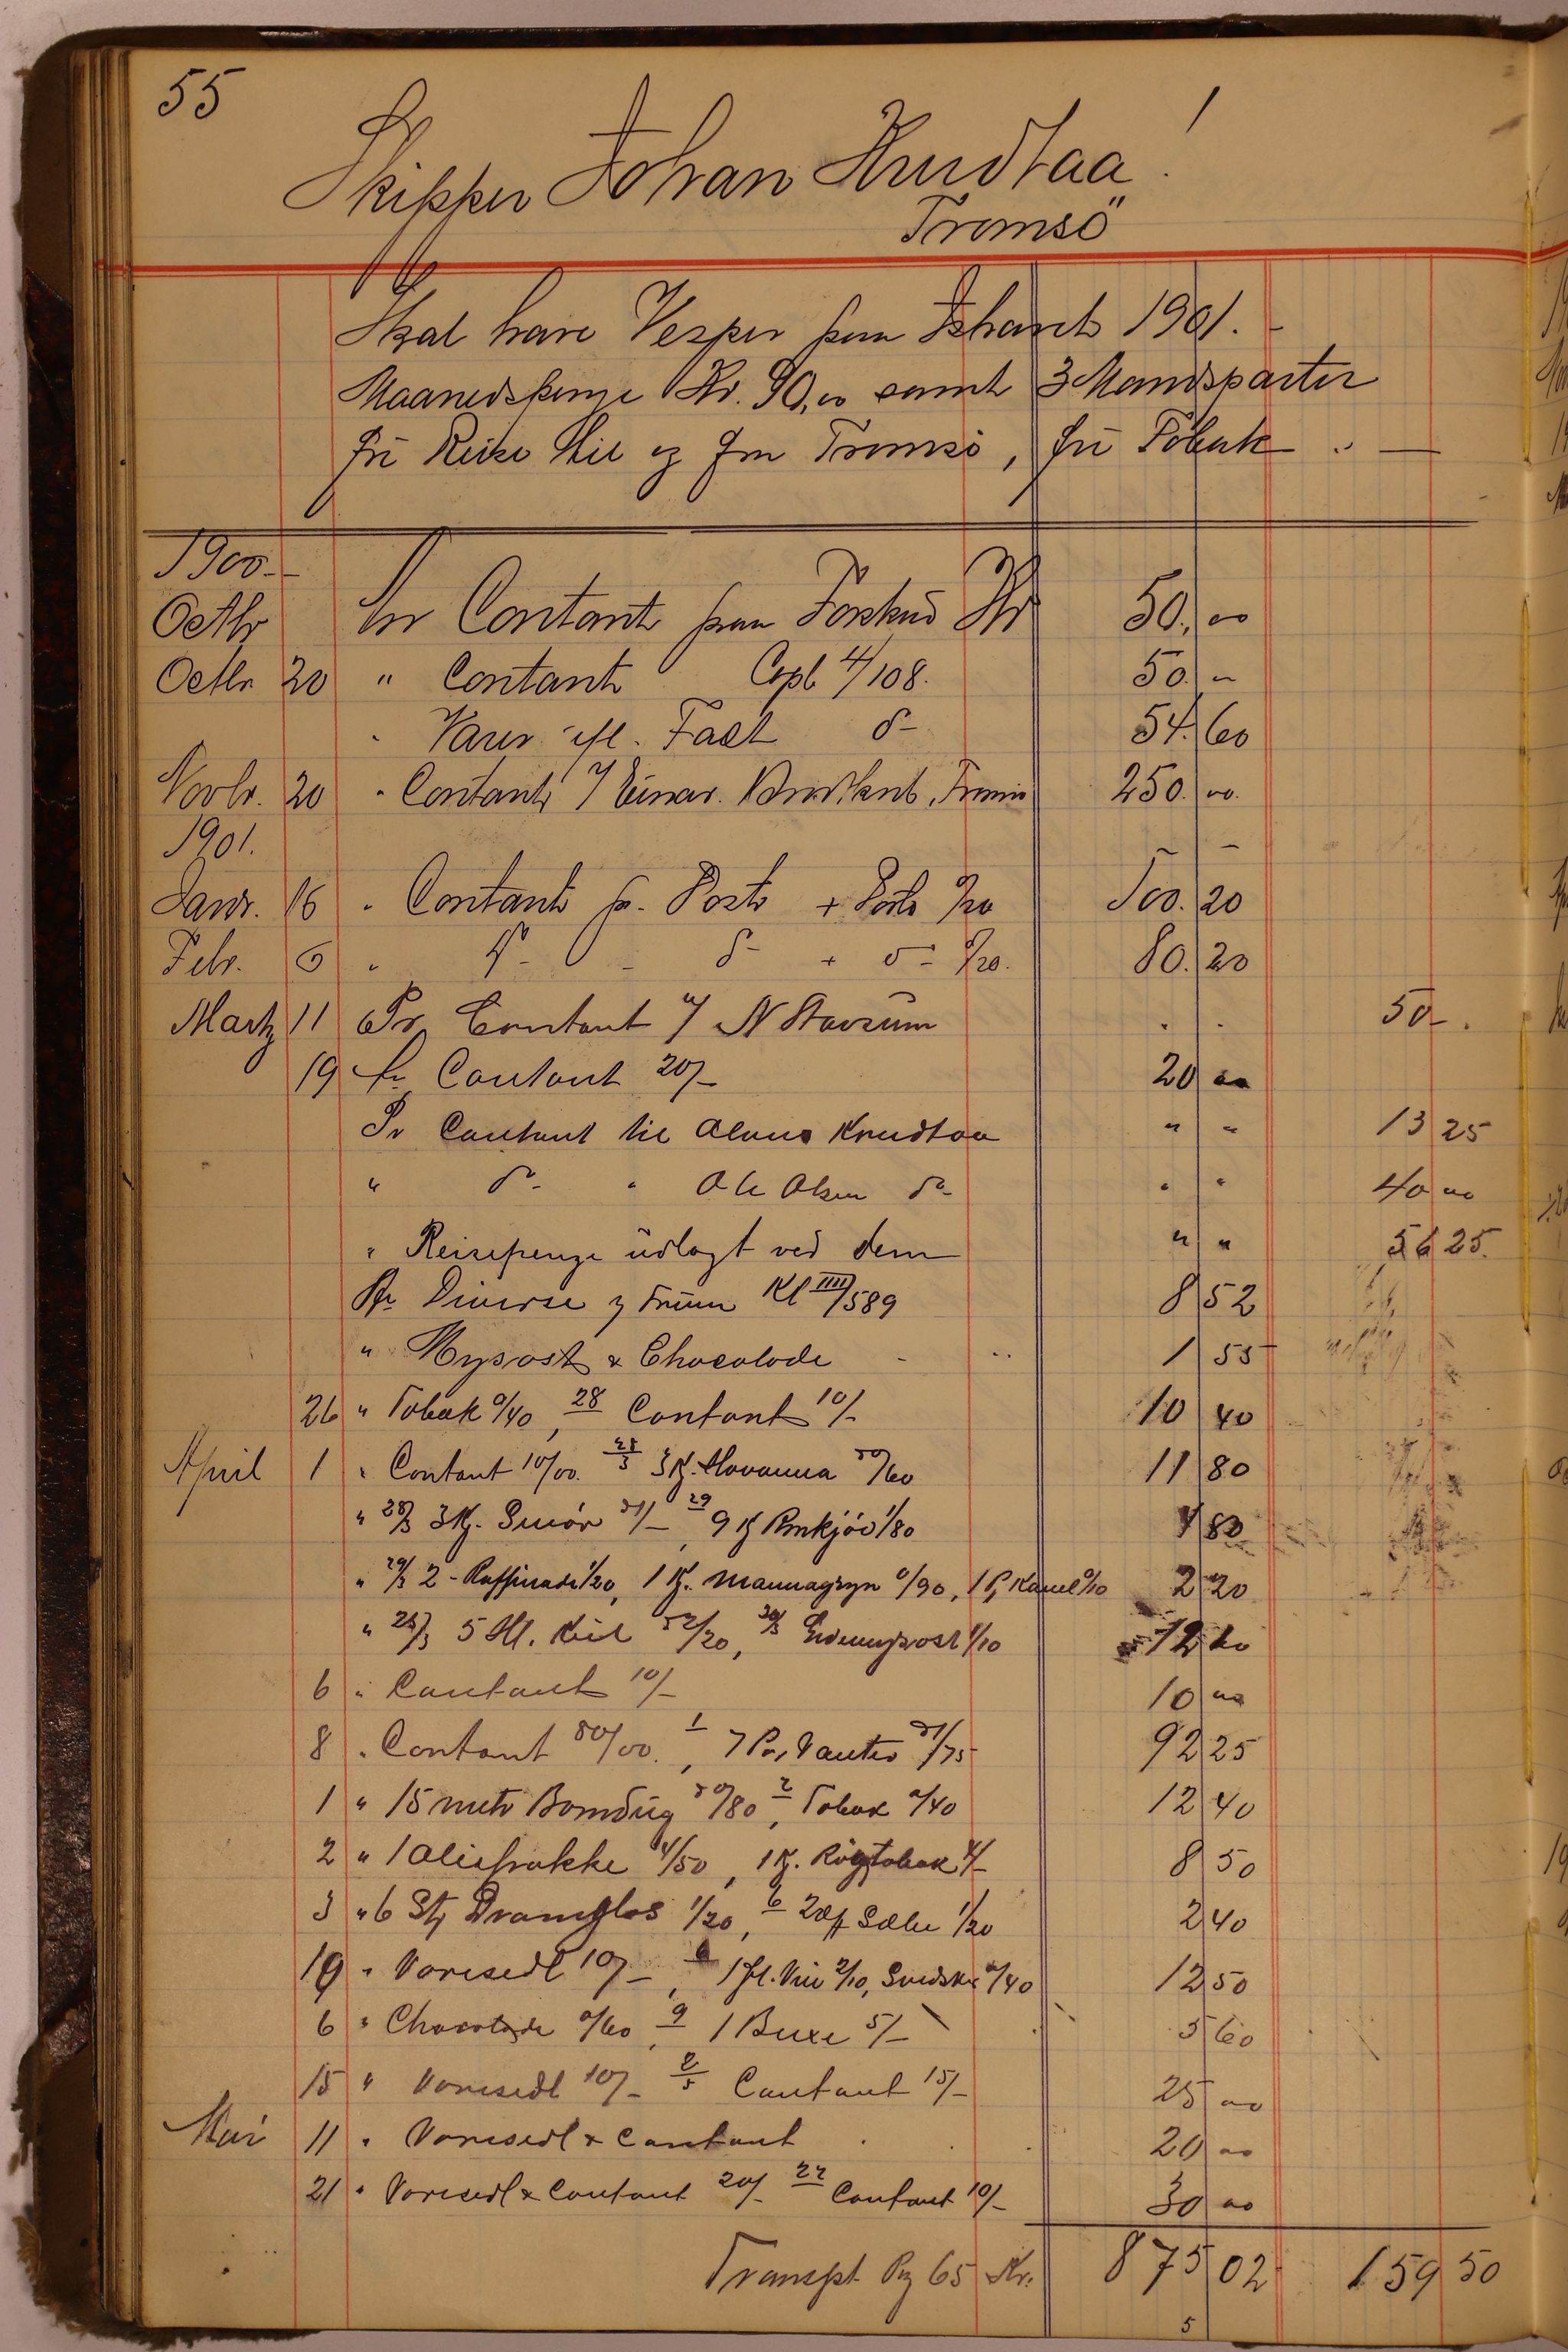 55
Skipper Johan Knudtaa!
Tromsö
Skal have Vesper paa Ishavet 1901.
Maanedspenge Kr. 90,00 samt 3 Mandsparter
fri Reise til og fra Tromsö, fri Tobak
1900.
Octbr Pr Contant paa Forskud Kr 50,00
Octbr. 20 " Contant Copb 4/108. 50. "
Varer ifl. Fact do 54.60
Novbr. 20 " Contant 250.00
1901.
Janr. 16 " Contant pr. Post + Porto 0/20 100.20
Febr. 6 " do - do + do 0/20. 80.20
Martz 11 Pr Contant 50-.
19 Pr Contant 20/- 20 00
Pr Contant til Knudtaa " " 13 25
" do " Ole Olsen do " " 40 00
" Reisepenge udlagt ved dem " " 56 25.
Pr Diverse Kl IIII/589 8 52
" Mysost & Chocolade 1 55
26 " Tobak 0/40, 28 Contant 10/- 10 40
April 1 " Contant 10/00. 28/3 3 K. Havanna 11 80
" 28/3 3 Kg. Smör 29 9 K 1/80 4 80
" 29/3 2 - Raffinade 1/20, 1 K. Mannagryn 0/90, 1 P Kanel 0/10 2 20
" 28/3 5 Hl. Kul 30/3
6 " Contant 10/- 10 00
8 " Contant 80/00. 1, 7 Par Vanter 92 25
1 " 15 metr Bomdug 2, Tobak 0/40 12 40
2 " 1 Oliefrakke 4/50, 1 K. Rögtobak 4/- 8 50
3 " 6 St Dramglas 1/20, 6 Sæbe 1/20 2 40
19 " Varesedl 10/-, 6 1 fl. Vin 2/10, Svedske 0/40 12 50
6 " Chocolade 0/60, 9 1 Buxe 5/- 5 60
15 " Varesedl 10/- 2/5 Contant 15/- 25 00
Mai 11 " Varesedl & Contant 20 00
21 " Varesedl & Contant 20/- 22 Contant 10/- 30 00
Transpt Pg 65 Kr. 875 02 159 50
5